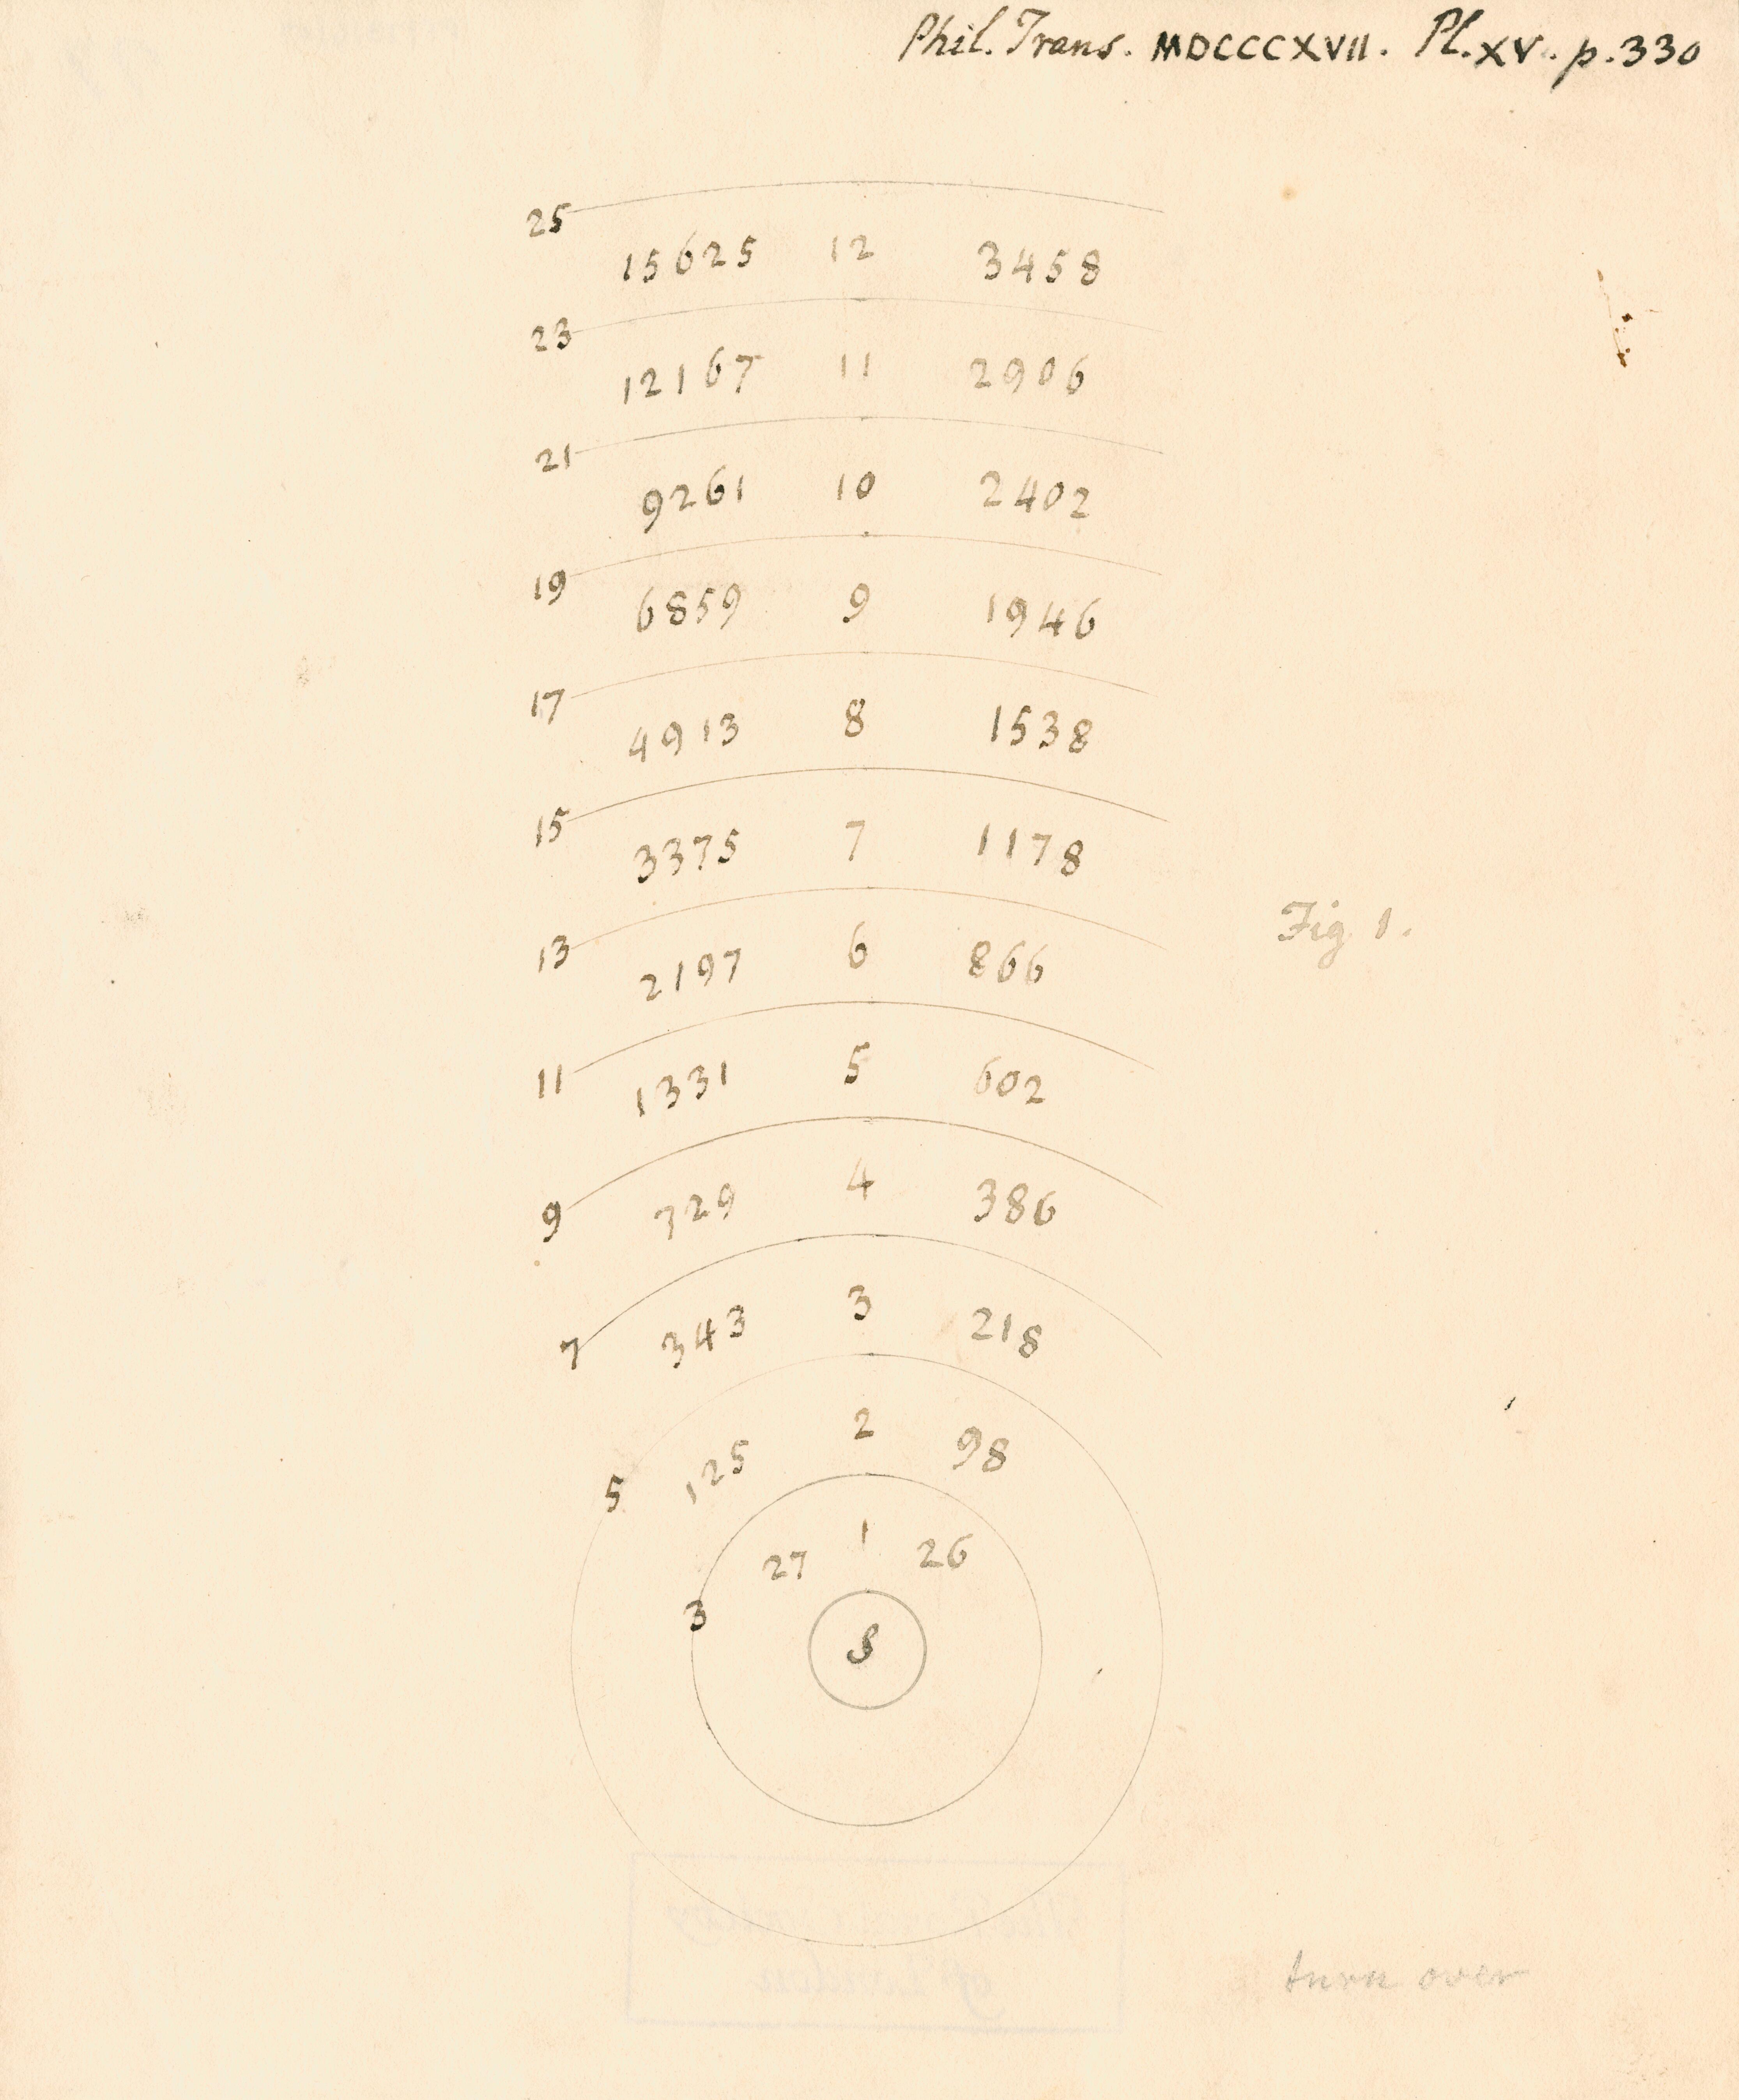 Phil. Trans. MDCCCXVII. Pl. XV. p. 330
25
15625 12 3458
23
12167 11 2906
21
9261 10 2402
19
6859 9 1946
17
4913 8 1538
15
3375 7 1178
Fig 1.
13
2197 6 866
11
1331 5 602
9
729 4 386
7
343 3 218
5
125 2 98
27 1 26
3
S
turn over